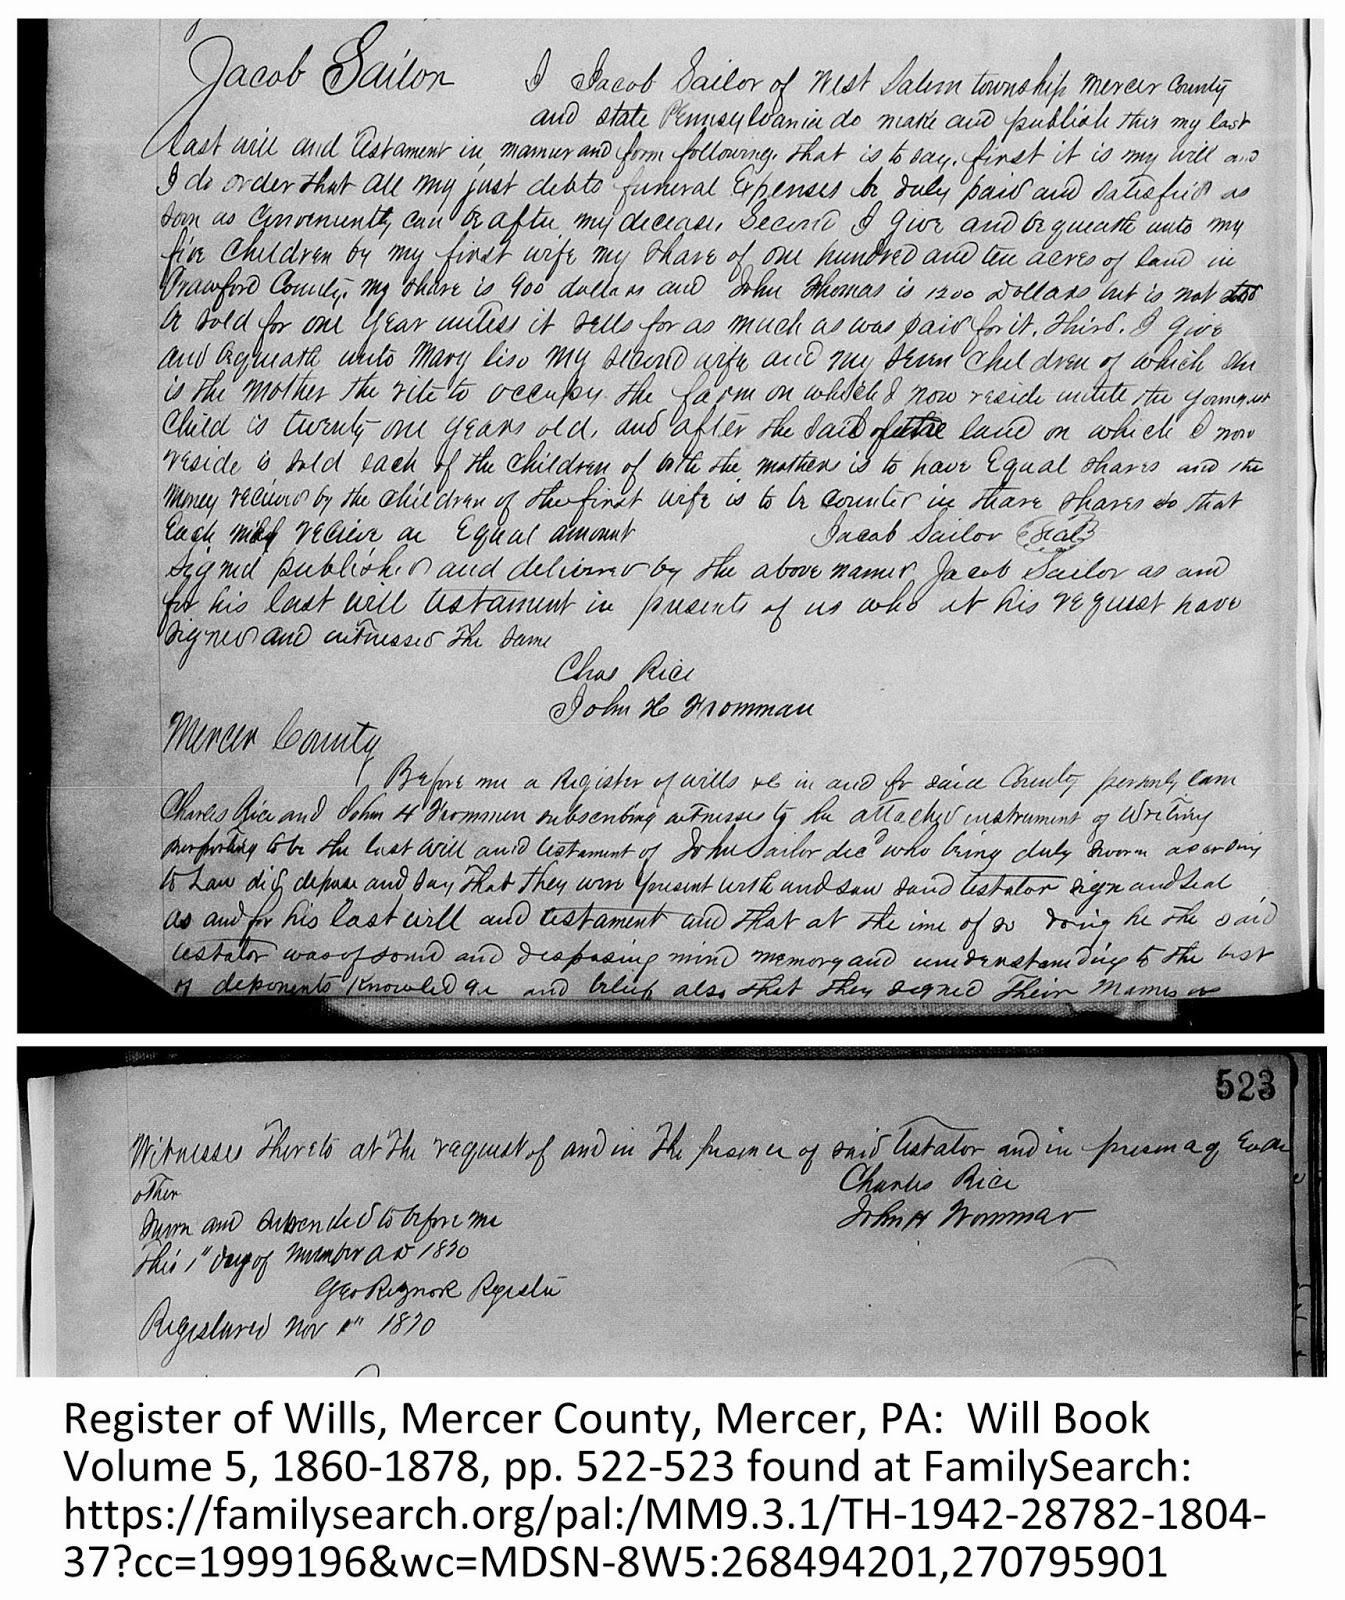 Jacob Sailor
I Jacob Sailor of West Salem township Mercer County
and state Pennsylvania do make and publish this my last
last will and testament in manner and form following. that is to say. first it is my will and
I do order that all my just debts funeral Expenses be duly paid and satisfied as
soon as Conveniently can be after my decease, Second I Give and bequeath unto my
five Children by my first wife my share of one hundred and ten acres of land in
Crawford County. my share is 900 dollars and John Thomas is 1200 Dollars but is not to
be sold for one year unless it sells for as much as was paid for it. third. I give
and bequeath unto Mary my second wife and my seven Children of which she
is the mother the rite to occupy the farm on which I now reside untill the youngest
Child is twenty one years old, and after the said land on which I now
reside is sold each of the children of both the mothers is to have Equal shares and the
money recieved by the children of the first wife is to be counted in share shares so that
Each may recieve an Equal amount Jacob Sailor Seal
Signed published and delivered by the above named Jacob Sailor as and
for his last will testament in presents of us who at his request have
signed and witnessed the same
Chas Rice
John H Fromman
Mercer County
Before me a Register of wills &c in and for said County personly Cam
Charles Rice and John H Frommen subscribing witnesses to the attached instrument of Writing
purporting to be the last will and testament of John Sailor decd who being duly sworn according
to Law did depose and say that they were present with and saw said testator sign and seal
as and for his last will and testament and that at the time of so doing he the said
testator was of sound and disposing mind memory and understanding to the best
of deponents Knowledge and belief also that they signed their names as
523
Witnesses thereto at the request of and in the presence of said testator and in presence of Each
other
Charles Rice
John H Frommar
Sworn and subscribed to before me
this 1" day of November AD 1870
Geo Reznor Register
Registered Nov 1" 1870
Register of Wills, Mercer County, Mercer, PA: Will Book
Volume 5, 1860-1878, pp. 522-523 found at FamilySearch:
https://familysearch.org/pal:/MM9.3.1/TH-1942-28782-1804-
37?cc=1999196&wc=MDSN-8W5:268494201,270795901